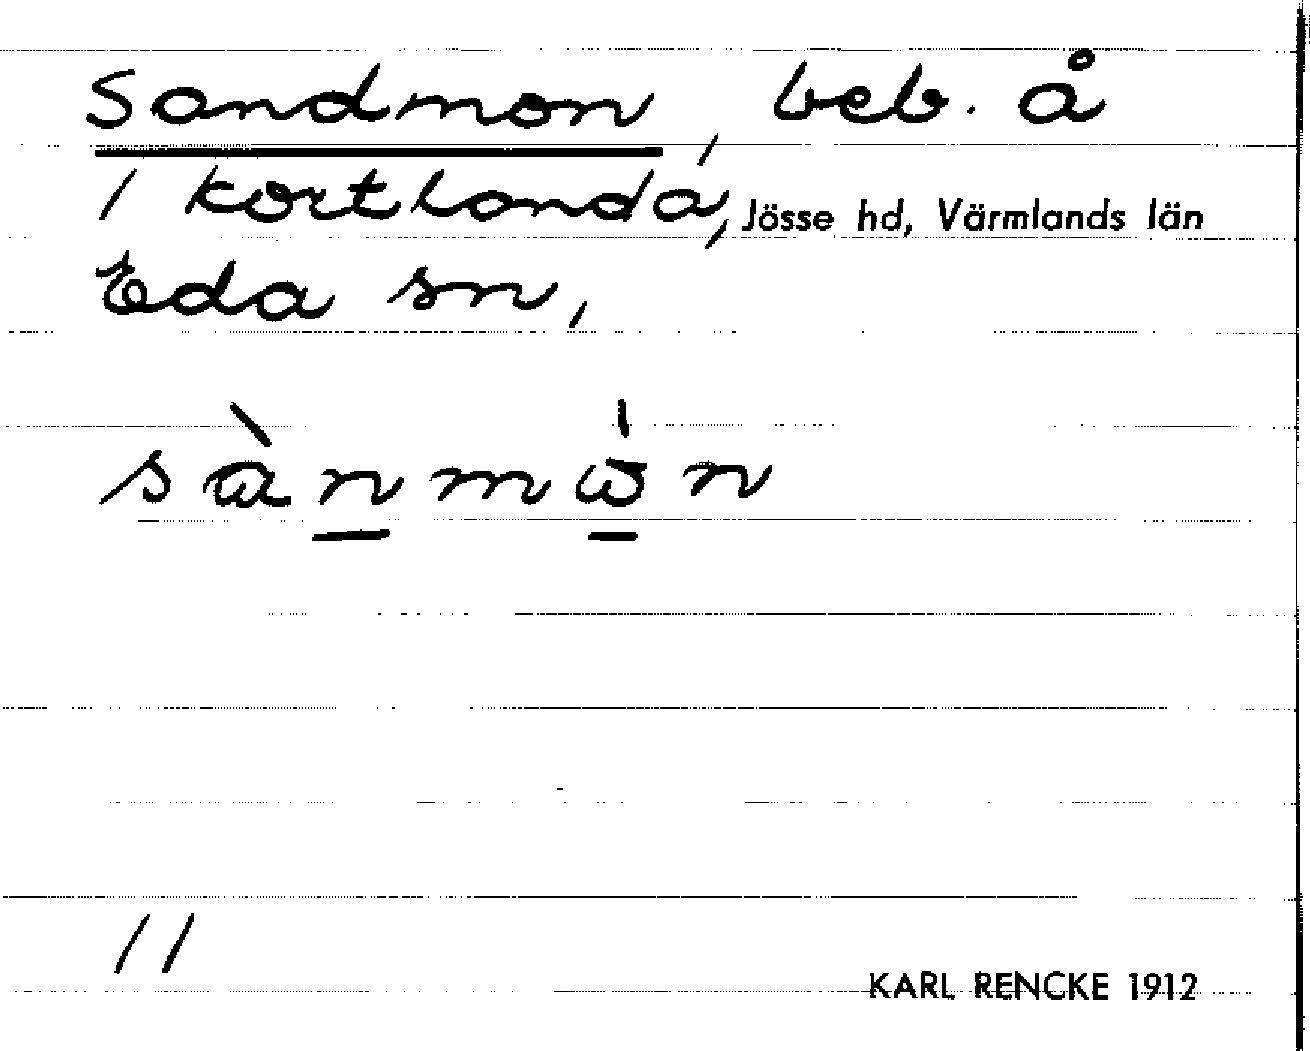 Sandmon, beb. å
1 Kortlanda, Jösse hd, Värmlands län
Eda sn,
sànmȯ̀n
11
KARL RENCKE 1912